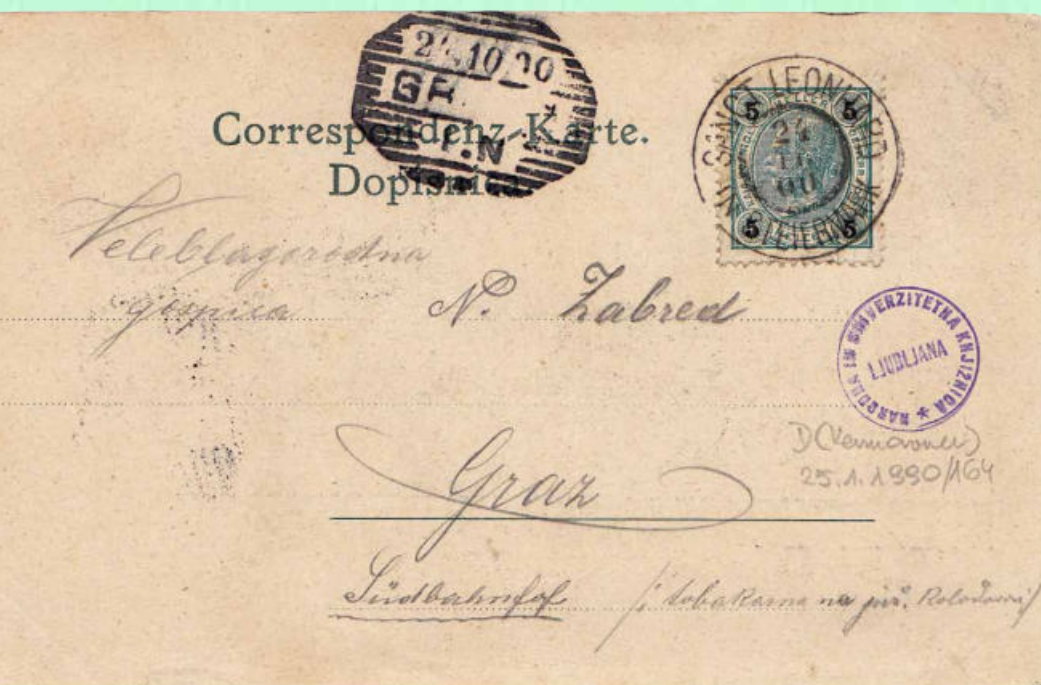 24 10 00
Correspondenz-Karte.
Dopisnica.
SANCT LEONHARD
24
00
5 5
5 5
Veleblagorodna
gospica N. Zabred
NARODNA IN UNIVERZITETNA KNJIŽNICA *
LJUBLJANA
25.1.1990/164
Graz
Südbahnhof /: tobakarna na juž.